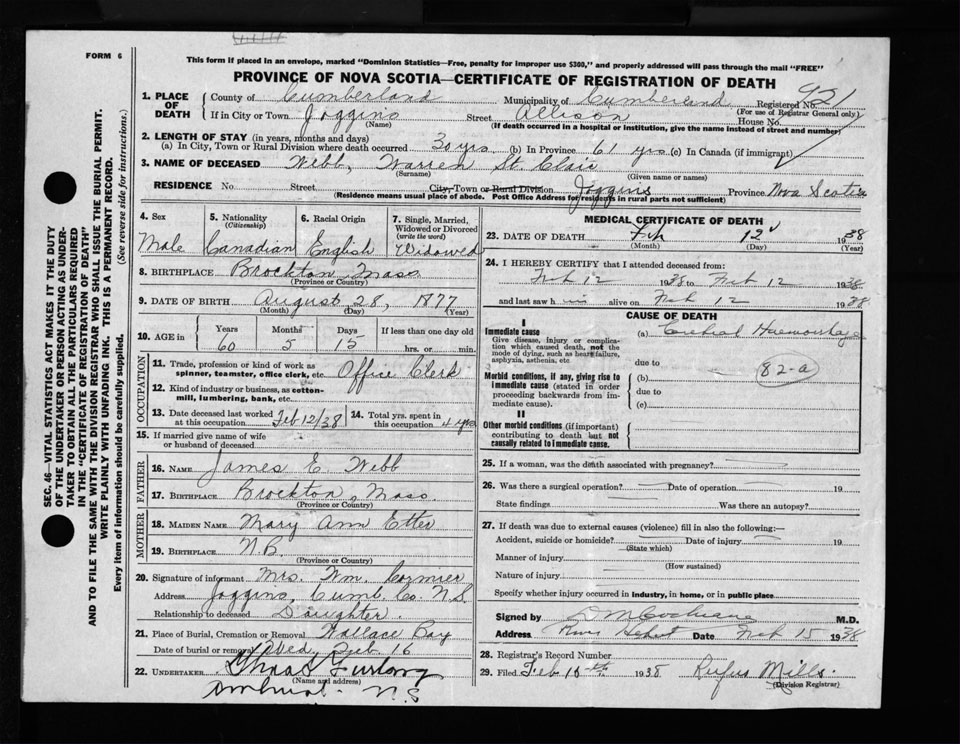 FORM 6
This form if placed in an envelope, marked "Dominion Statistics—Free, penalty for improper use $300," and properly addressed will pass through the mail "FREE"
PROVINCE OF NOVA SCOTIA—CERTIFICATE OF REGISTRATION OF DEATH
1. PLACE OF DEATH County of Cumberland Municipality of Cumberland Registered No. 921
(For use of Registrar General only)
If in City or Town Joggins Street Allison House No.
(Name) (If death occurred in a hospital or institution, give the name instead of street and number)
2. LENGTH OF STAY (in years, months and days)
(a) In City, Town or Rural Division where death occurred 30 yrs (b) In Province 61 yrs (c) In Canada (if immigrant)
3. NAME OF DECEASED Webb, Warren St. Clair
(Surname) (Given name or names)
RESIDENCE No Street City, Town or Rural Division Joggins Province Nova Scotia
(Residence means usual place of abode. Post Office Address for residents in rural parts not sufficient)
4. Sex 5. Nationality (Citizenship) 6. Racial Origin 7. Single, Married, Widowed or Divorced (write the word)
Male Canadian English Widowed
8. BIRTHPLACE Brockton, Mass
(Province or Country)
9. DATE OF BIRTH August 28, 1877
(Month) (Day) (Year)
10. AGE in Years Months Days If less than one day old
60 5 15 hrs. or min.
OCCUPATION
11. Trade, profession or kind of work as spinner, teamster, office clerk, etc. Office Clerk
12. Kind of industry or business, as cotton-mill, lumbering, bank, etc.
13. Date deceased last worked at this occupation Feb 12/38 14. Total yrs. spent in this occupation 4 yrs
15. If married give name of wife or husband of deceased
FATHER
16. NAME James E. Webb
17. BIRTHPLACE Brockton, Mass.
(Province or Country)
MOTHER
18. MAIDEN NAME Mary Ann Etter
19. BIRTHPLACE N.B.
(Province or Country)
20. Signature of informant Mrs. Wm. Cormier
Address Joggins, Cumb. Co. N.S
Relationship to deceased Daughter.
21. Place of Burial, Cremation or Removal Wallace Bay
Date of burial or removal Wed, Feb. 16
22. UNDERTAKER Chas Furlong
(Name and address)
Amherst - N.S
MEDICAL CERTIFICATE OF DEATH
23. DATE OF DEATH Feb 12 1938
(Month) (Day) (Year)
24. I HEREBY CERTIFY that I attended deceased from:
Feb 12 1938 to Feb 12 1938
and last saw him alive on Feb 12 1938
CAUSE OF DEATH
I
Immediate cause (a) Cerebral Haemorrhage
Give disease, injury or complication which caused death, not the mode of dying, such as heart failure, asphyxia, asthenia, etc.
due to
82-a
Morbid conditions, if any, giving rise to immediate cause (stated in order proceeding backwards from immediate cause). (b)
due to
(c)
II
Other morbid conditions (if important) contributing to death but not causally related to immediate cause.
25. If a woman, was the death associated with pregnancy?
26. Was there a surgical operation? Date of operation 19
State findings Was there an autopsy?
27. If death was due to external causes (violence) fill in also the following:—
Accident, suicide or homicide? Date of injury 19
(State which)
Manner of injury
(How sustained)
Nature of injury
Specify whether injury occurred in industry, in home, or in public place
Signed by D M Cochrane M.D.
Address River Hebert Date Feb 15 1938
28. Registrar's Record Number
29. Filed Feb 15th 1938 Rufus Mills
(Division Registrar)
SEC. 46—VITAL STATISTICS ACT MAKES IT THE DUTY
OF THE UNDERTAKER OR PERSON ACTING AS UNDER-
TAKER TO OBTAIN ALL THE PARTICULARS REQUIRED
IN THE "CERTIFICATE OF REGISTRATION OF DEATH"
AND TO FILE THE SAME WITH THE DIVISION REGISTRAR WHO SHALL ISSUE THE BURIAL PERMIT.
WRITE PLAINLY WITH UNFADING INK. THIS IS A PERMANENT RECORD.
Every item of information should be carefully supplied. (See reverse side for instructions.)